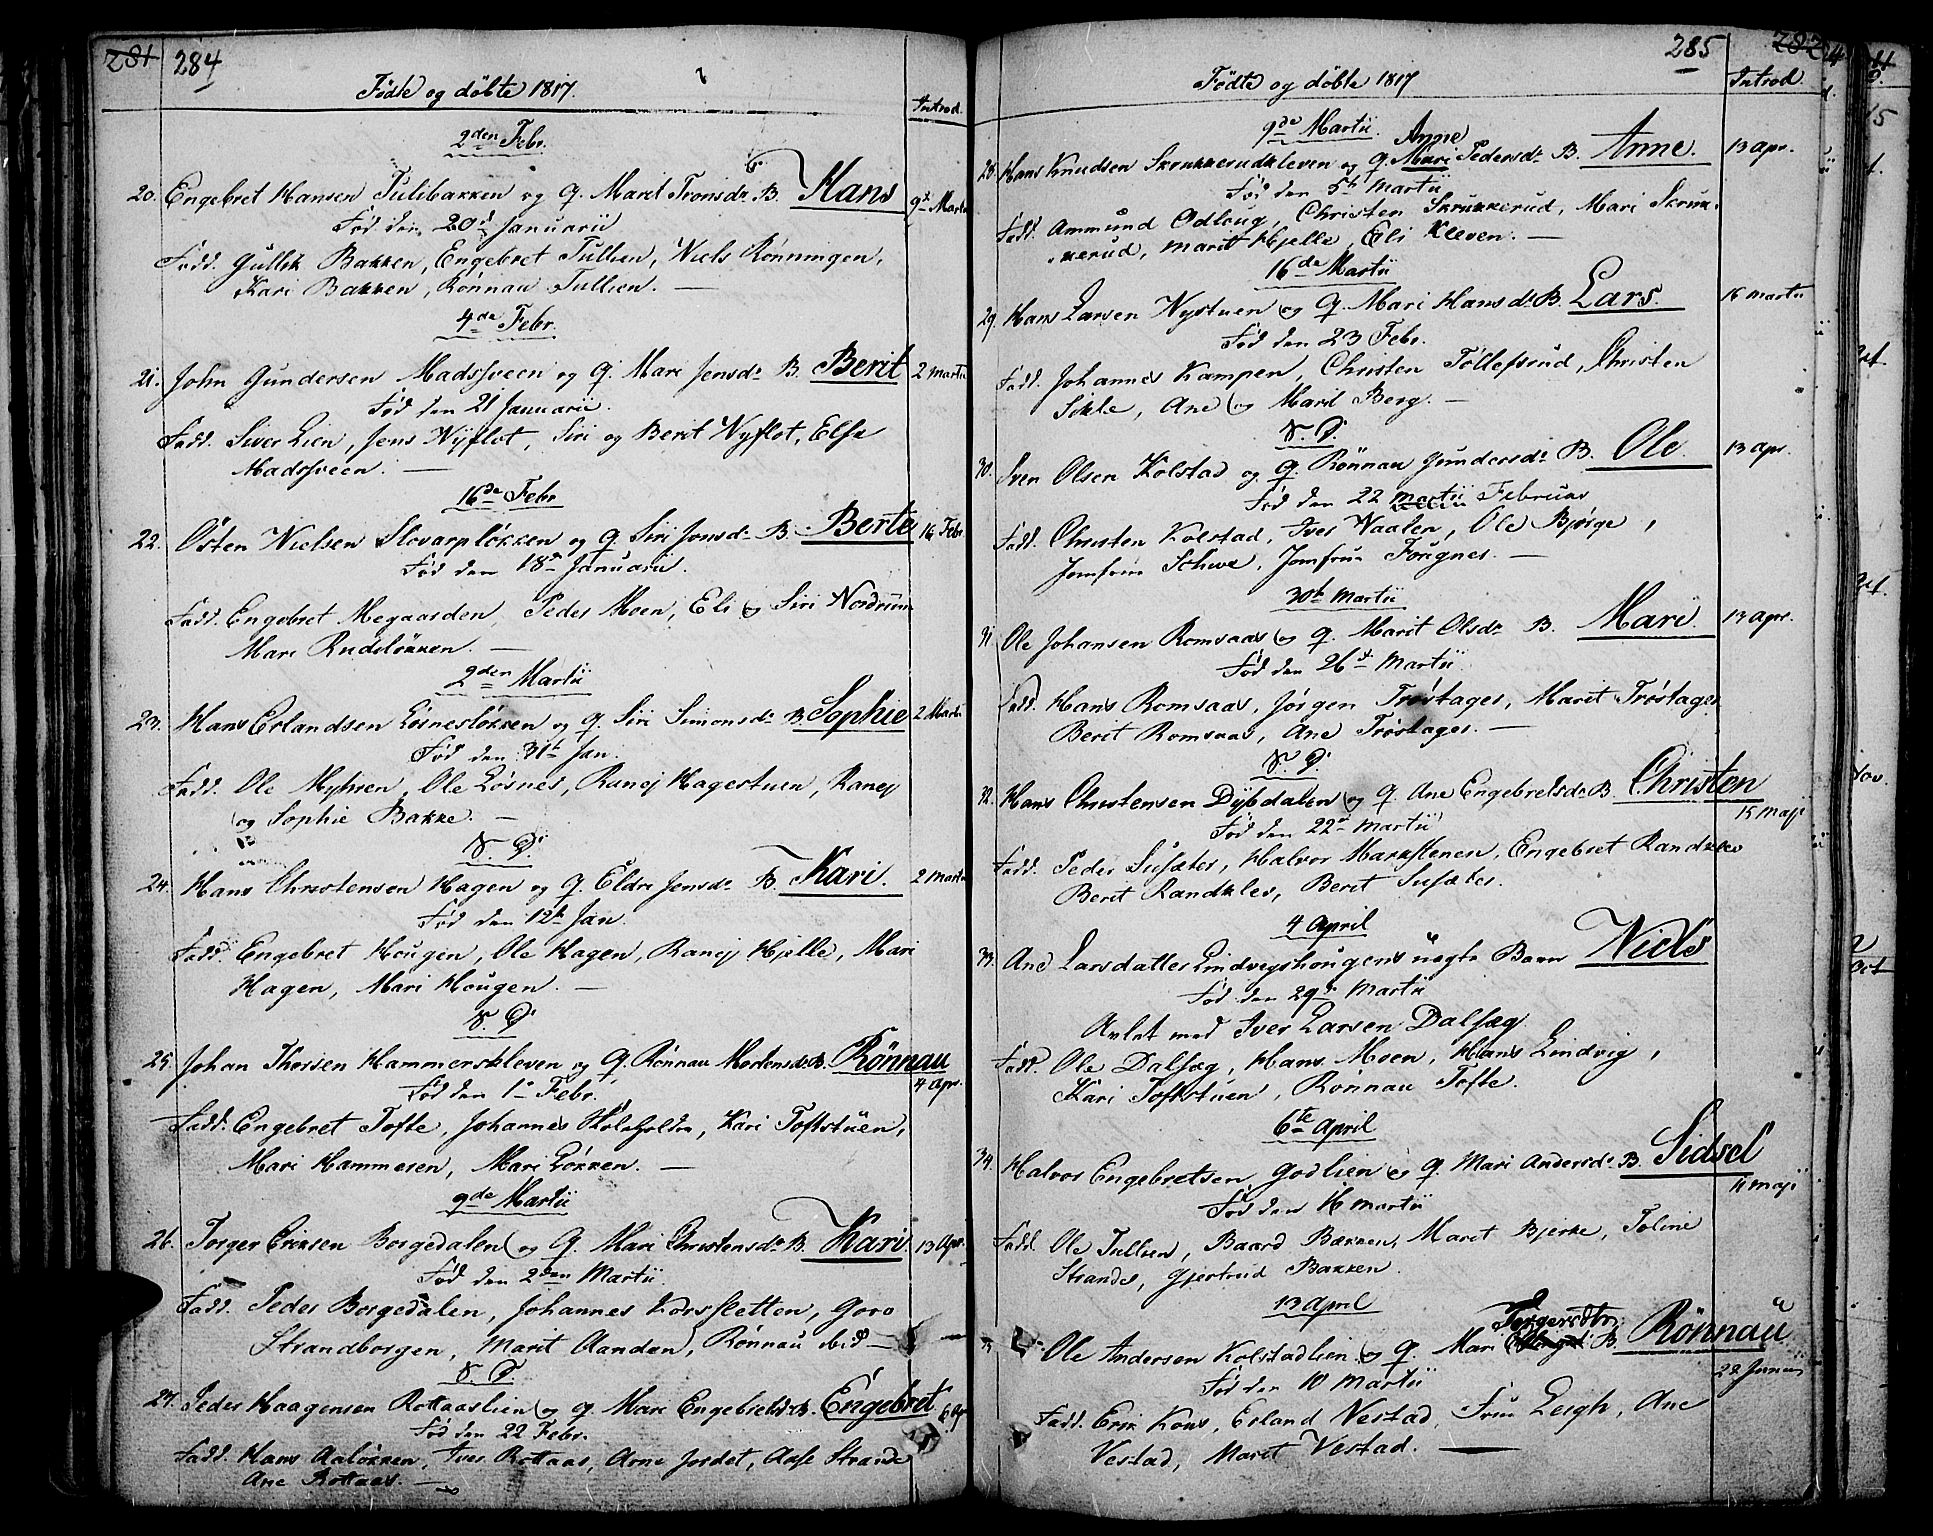 281 284
Fødte og døbte 1817.
Introd.
2den Febr.
20. Engebret Hansen Tulibakken og q. Marit Tronsdr B. Hans 9d Martii
Fød den 20d Januarii
Fadd. Gullik Bakken, Engebret Tullien, Niels Rønningen,
Kari Bakken, Rønnau Tullien. —
4de Febr.
21. John Gundersen Madssveen og q. Mari Jensdr B. Berit 2 Martii
Fød den 21 Januarii.
Fadd. Siver Lien, Jens Nyflot, Siri og Berit Nyflot, Else
Madssveen. —
16de Febr
22. Østen Nielsen Slovarpløkken og q. Siri Jonsdr B. Berte 16 Febr.
Fød den 18n Januarii.
Fadd. Engebret Megaarden, Peder Moen, Eli og Siri Nordrum
Mari Rudsløkken. —
2den Martii
23. Hans Erlandsen Løsnesløkken og q. Siri Simonsdr B. Sophie 2 Martii
Fød den 31t Jan.
Fadd. Ole Myhren, Ole Løsnes, Ranej Hagestuen, Ranej
og Sophie Bakke. —
S. D.
24. Hans Christensen Hagen og q. Eldri Jensdr B. Kari. 2 Martii
Fød den 12t Jan.
Fadd. Engebret Hougen, Ole Hagen, Ranej Hjelle, Mari
Hagen, Mari Hougen. —
S. D.
25. Johan Thorsen Hammerskleven og q. Rønnau Mortensdr B. Rönnau
4 Apr.
Fød den 1e Febr.
Fadd. Engebret Tofte, Johannes Skoleholder, Kari Toftstuen,
Mari Hammeren, Mari Løkken. —
9de Martii
26. Torger Eriksen Borgedalen og q. Mari Christensdr B. Kari. 13 Apr.
Fød den 2den Martii.
Fadd. Peder Borgedalen, Johannes Korssletten, Goro
Strandborgen, Marit Aandan, Rønnau ibid —
S. D.
27. Peder Haagensen Rottaaslien og q. Mari Engebretsdr B. Engebret 6 Ap
Fød den 22 Febr.
Fadd. Hans Aaløkken, Iver Rottaas, Arne Jordet, Aase Strande
Ane Rottaas. —
285 282
Fødte og døbte 1817
Introd
9de Martii.
Anne
28. Hans Knudsen Skrukkerudkleven og q. Mari Pedersdr B. Anne. 13 apr.
Fød den 5t Martii
Fadd. Ammund Odloug, Christen Skrukkerud, Mari Skruk-
kerud, Marit Hjelle, Eli Kleven. —
16de Martii
29. Hans Larsen Nystuen og q. Mari Hansdr B. Lars. 16 martii
Fød den 23 Febr.
Fadd. Johannes Kampen, Christen Tollefsrud, Christen
Sikle, Ane og Marit Berg. —
S. D.
30. Sven Olsen Kolstad og q. Rønnau Gundersdr B. Ole. 13 apr.
Fød den 22 Martii Februar
Fadd. Christen Kolstad, Iver Vaalen, Ole Bjørge,
Jomfrue Schwe, Jomfrue Fougner. —
30t Martii
31 Ole Johansen Romsaas og q. Marit Olsdr B. Mari. 13 apr.
Fød den 26t Martii.
Fadd. Hans Romsaas, Jørgen Trøstager, Marit Trøstager
Berit Romsaas, Ane Trøstager. —
S. D.
32. Hans Christensen Dybdalen og q. Ane Engebretsdr B. Christen
15 maji
Fød den 22d Martii
Fadd. Peder Susæter, Halvor Markstenen, Engebret Randklev
Berit Randklev, Berit Susæter.
4 April
33. Ane Larsdatter Lindvigshougens uægte Barn Niels
Fød den 29de Martii
Avlet med Iver Larsen Dalsæg
Fadd. Ole Dalsæg, Hans Moen, Hans Lindvig,
Kari Toftstuen, Rønnau Tofte.
6te April
34. Halvor Engebretsen Godlien og q. Mari Andersdr B. Sidsel
11 maji
Fød den 16 Martii
Fadd. Ole Tullien, Baard Bakken, Marit Bjerke, Toline
Strande, Gjertrud Bakken.
13 April
Torgersdtr
Ole Andersen Kolstadlien og q. Mari B. Rönnau
22 Junii
Fød den 10 Martii
Fadd. Erik Kons, Erland Vestad, Frue Leigh, Ane
Vestad, Marit Vestad. —